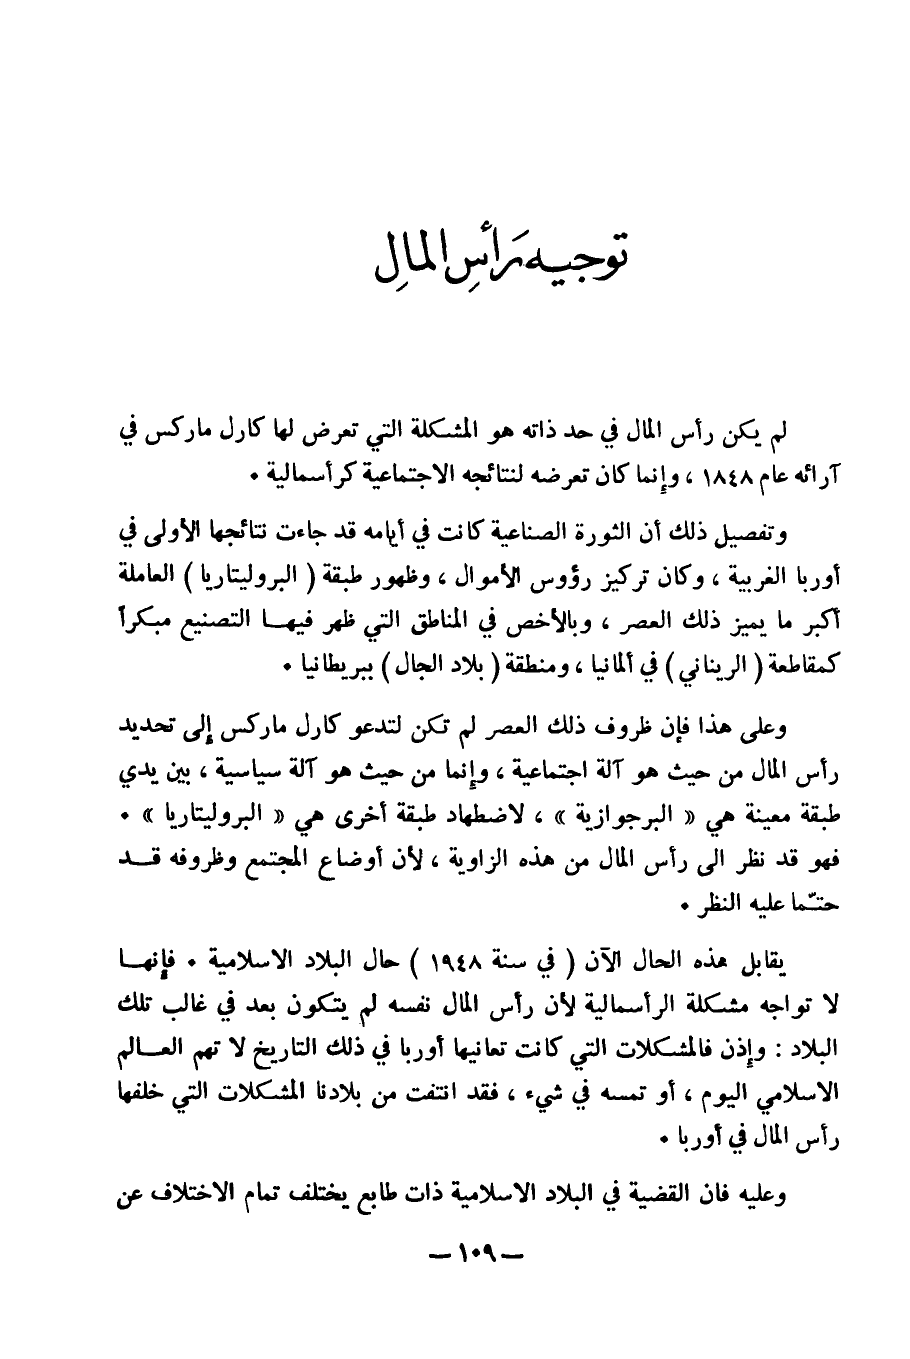 توجيه رَأسِ المالِ
لم يكن رأس المال في حد ذاته هو المشكلة التي تعرض لها كارل ماركس في
آرائه عام ١٨٤٨ ، وإنما كان تعرضه لنتائجه الاجتماعية كرأسمالية .
وتفصيل ذلك أن الثورة الصناعية كانت في أيامه قد جاءت نتائجها الأولى في
أوربا الغربية ، وكان تركيز رؤوس الأموال ، وظهور طبقة ( البروليتاريا ) العاملة
أكبر ما يميز ذلك العصر ، وبالأخص في المناطق التي ظهر فيهــا التصنيع مبكراً
كمقاطعة ( الريناني ) في ألمانيا ، ومنطقة ( بلاد الجال ) ببريطانيا .
وعلى هذا فإن ظروف ذلك العصر لم تكن لتدعو كارل ماركس إلى تحديد
رأس المال من حيث هو آلة اجتماعية ، وإنما من حيث هو آلة سياسية ، بين يدي
طبقة معينة هي « البرجوازية » ، لاضطهاد طبقة أخرى هي « البروليتاريا » .
فهو قد نظر الى رأس المال من هذه الزاوية ، لأن أوضاع المجتمع وظروفه قــد
حتـّما عليه النظر .
يقابل هذه الحال الآن ( في سنة ١٩٤٨ ) حال البلاد الاسلامية . فإنهــا
لا تواجه مشكلة الرأسمالية لأن رأس المال نفسه لم يتكون بعد في غالب تلك
البلاد : وإذن فالمشكلات التي كانت تعانيها أوربا في ذلك التاريخ لا تهم العــالم
الاسلامي اليوم ، أو تمسه في شيء ، فقد انتفت من بلادنا المشكلات التي خلفها
رأس المال في أوربا .
وعليه فان القضية في البلاد الاسلامية ذات طابع يختلف تمام الاختلاف عن
— ١٠٩ —